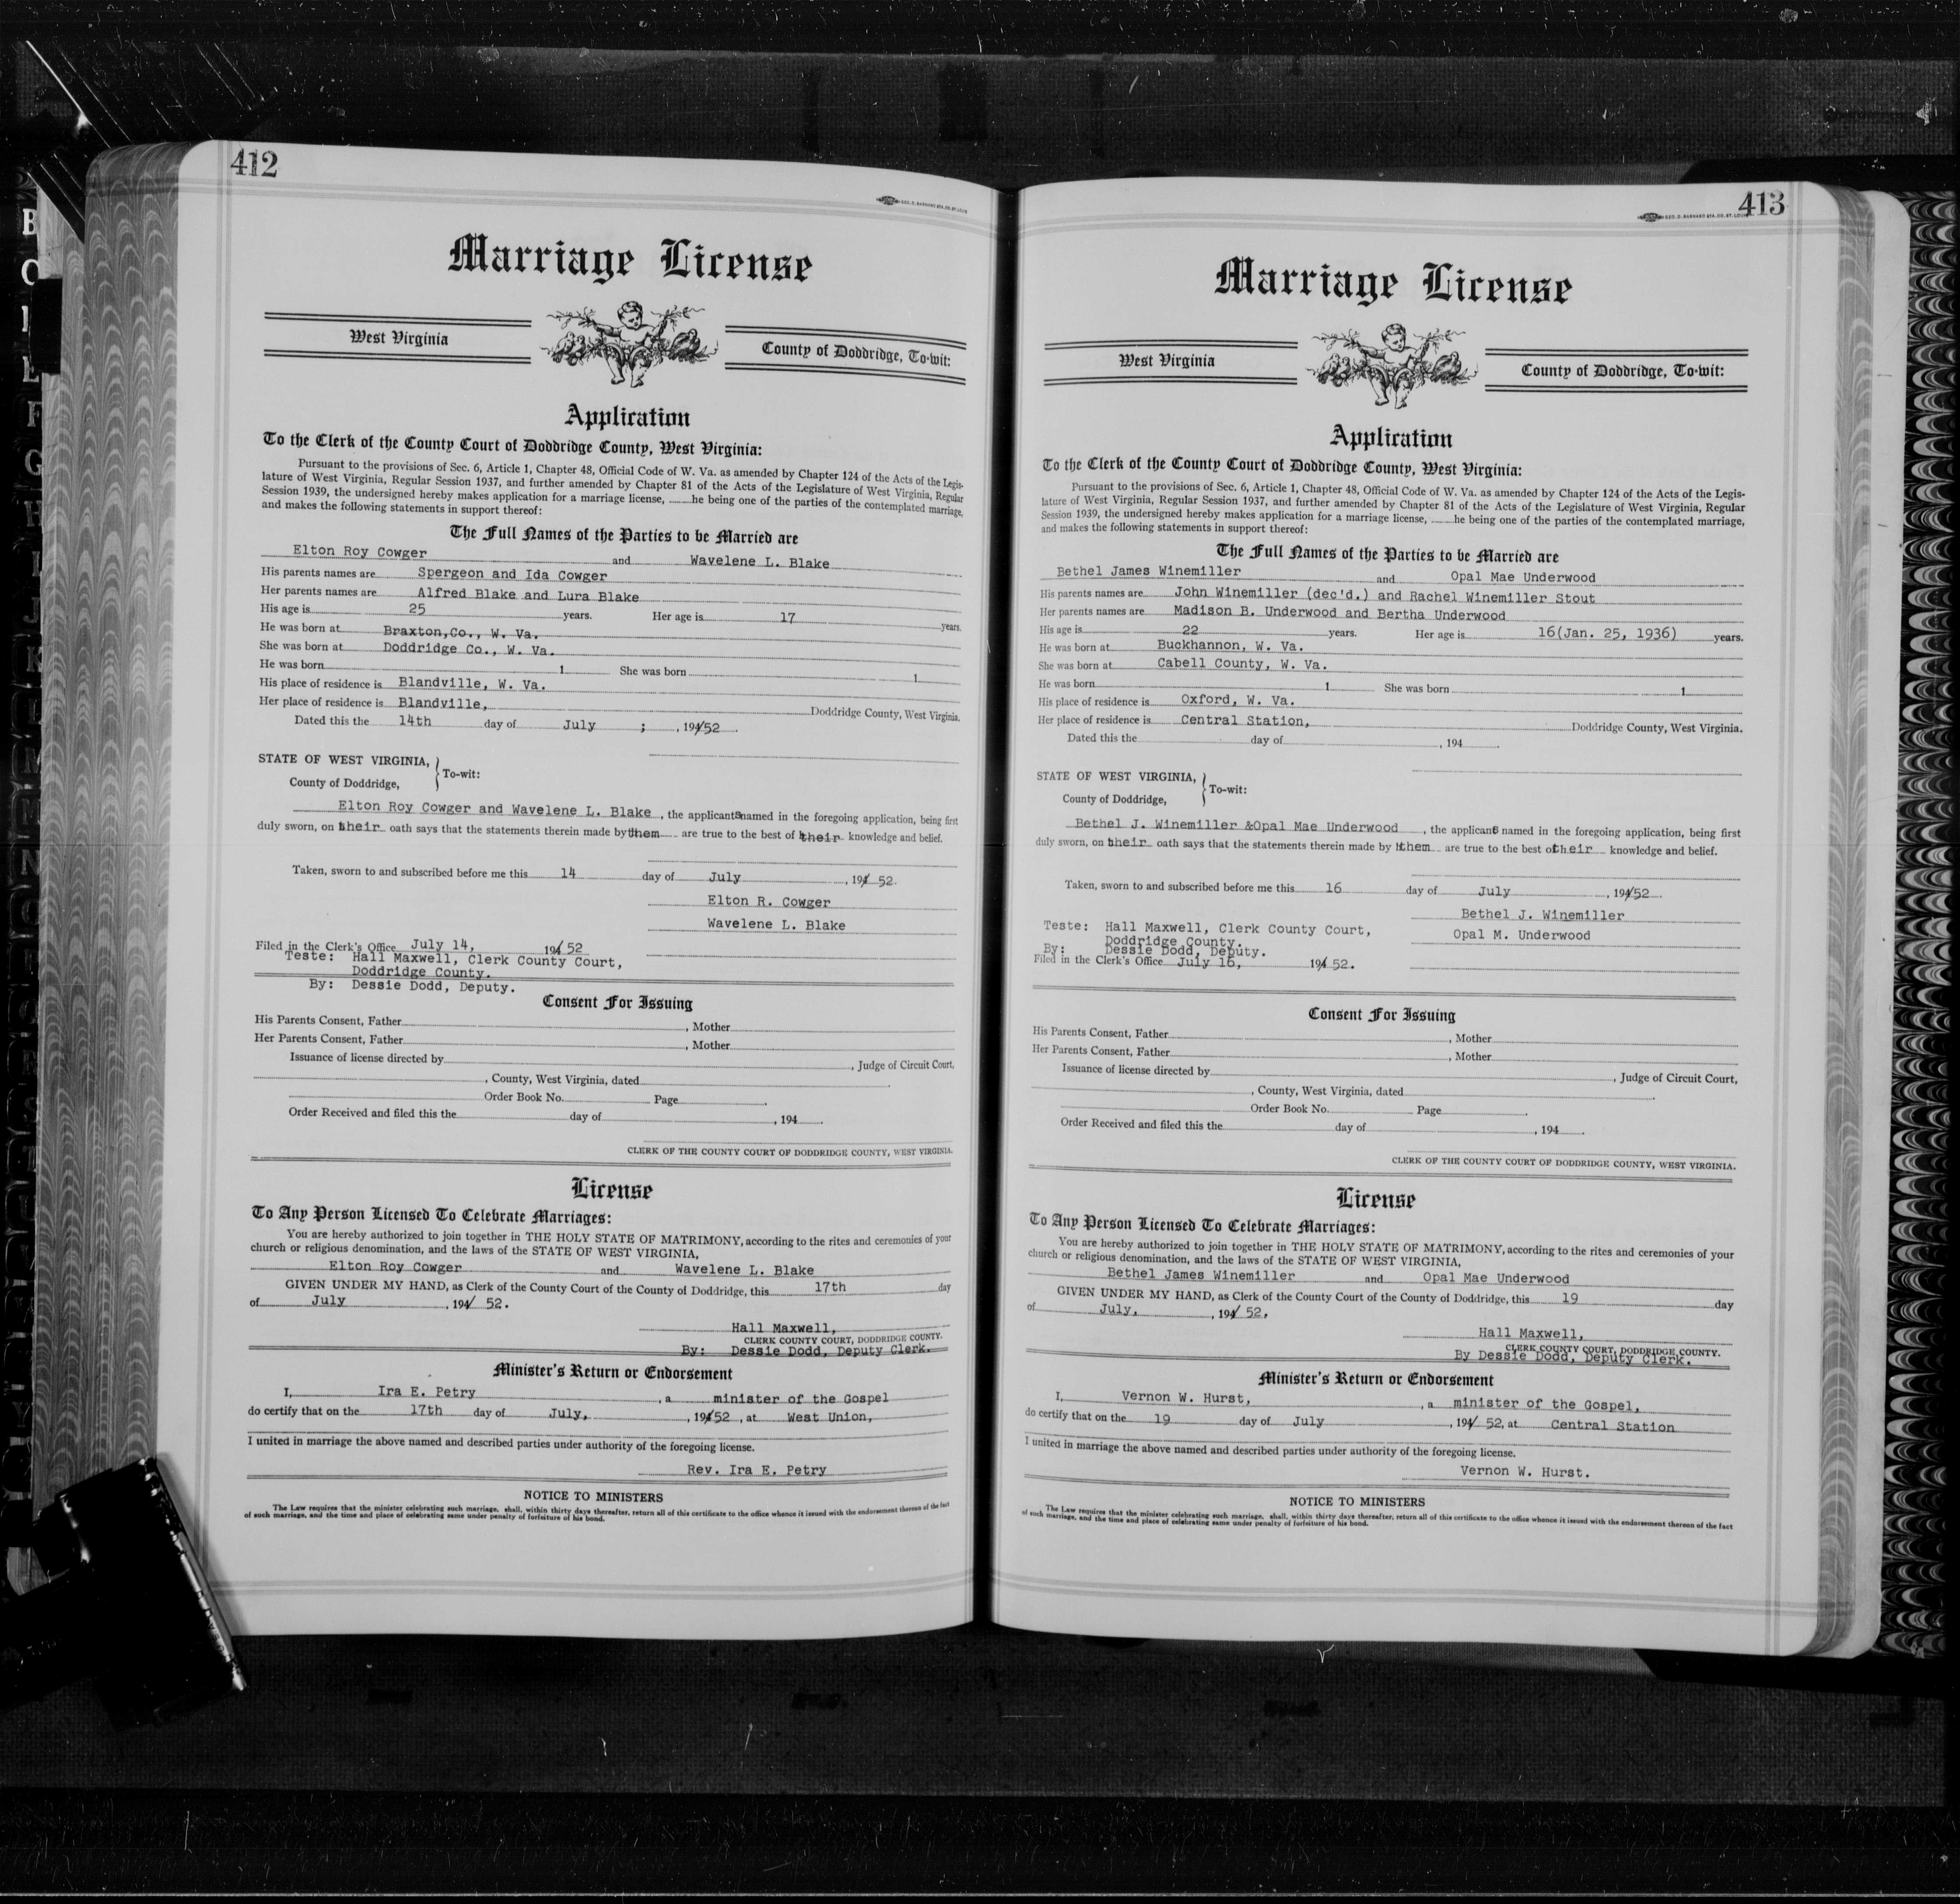 412
Marriage License
West Virginia
County of Doddridge, To-wit:
Application
To the Clerk of the County Court of Doddridge County, West Virginia:
Pursuant to the provisions of Sec. 6, Article 1, Chapter 48, Official Code of W. Va. as amended by Chapter 124 of the Acts of the Legis-
lature of West Virginia, Regular Session 1937, and further amended by Chapter 81 of the Acts of the Legislature of West Virginia, Regular
Session 1939, the undersigned hereby makes application for a marriage license, he being one of the parties of the contemplated marriage,
and makes the following statements in support thereof:
The Full Names of the Parties to be Married are
Elton Roy Cowger and Wavelene L. Blake
His parents names are Spergeon and Ida Cowger
Her parents names are Alfred Blake and Lura Blake
His age is 25 years. Her age is 17 years.
He was born at Braxton,Co., W. Va.
She was born at Doddridge Co., W. Va.
He was born 1 She was born 1
His place of residence is Blandville, W. Va.
Her place of residence is Blandville, Doddridge County, West Virginia.
Dated this the 14th day of July ; , 194/52 .
STATE OF WEST VIRGINIA,
County of Doddridge, } To-wit:
Elton Roy Cowger and Wavelene L. Blake , the applicants named in the foregoing application, being first
duly sworn, on their oath says that the statements therein made by them are true to the best of their knowledge and belief.
Taken, sworn to and subscribed before me this 14 day of July , 194/ 52.
Elton R. Cowger
Wavelene L. Blake
Filed in the Clerk's Office July 14, 194/ 52
Teste: Hall Maxwell, Clerk County Court,
Doddridge County.
By: Dessie Dodd, Deputy.
Consent For Issuing
His Parents Consent, Father , Mother
Her Parents Consent, Father , Mother
Issuance of license directed by , Judge of Circuit Court,
, County, West Virginia, dated .
Order Book No. Page .
Order Received and filed this the day of , 194 .
CLERK OF THE COUNTY COURT OF DODDRIDGE COUNTY, WEST VIRGINIA.
License
To Any Person Licensed To Celebrate Marriages:
You are hereby authorized to join together in THE HOLY STATE OF MATRIMONY, according to the rites and ceremonies of your
church or religious denomination, and the laws of the STATE OF WEST VIRGINIA,
Elton Roy Cowger and Wavelene L. Blake
GIVEN UNDER MY HAND, as Clerk of the County Court of the County of Doddridge, this 17th day
of July , 194/ 52.
Hall Maxwell,
CLERK COUNTY COURT, DODDRIDGE COUNTY.
By: Dessie Dodd, Deputy Clerk.
Minister's Return or Endorsement
I, Ira E. Petry , a minister of the Gospel
do certify that on the 17th day of July, , 194/52 , at West Union,
I united in marriage the above named and described parties under authority of the foregoing license.
Rev. Ira E. Petry
NOTICE TO MINISTERS
The Law requires that the minister celebrating such marriage, shall, within thirty days thereafter, return all of this certificate to the office whence it issued with the endorsement thereon of the fact
of such marriage, and the time and place of celebrating same under penalty of forfeiture of his bond.
413
Marriage License
West Virginia
County of Doddridge, To-wit:
Application
To the Clerk of the County Court of Doddridge County, West Virginia:
Pursuant to the provisions of Sec. 6, Article 1, Chapter 48, Official Code of W. Va. as amended by Chapter 124 of the Acts of the Legis-
lature of West Virginia, Regular Session 1937, and further amended by Chapter 81 of the Acts of the Legislature of West Virginia, Regular
Session 1939, the undersigned hereby makes application for a marriage license, he being one of the parties of the contemplated marriage,
and makes the following statements in support thereof:
The Full Names of the Parties to be Married are
Bethel James Winemiller and Opal Mae Underwood
His parents names are John Winemiller (dec'd.) and Rachel Winemiller Stout
Her parents names are Madison B. Underwood and Bertha Underwood
His age is 22 years. Her age is 16(Jan. 25, 1936) years.
He was born at Buckhannon, W. Va.
She was born at Cabell County, W. Va.
He was born 1 She was born 1
His place of residence is Oxford, W. Va.
Her place of residence is Central Station, Doddridge County, West Virginia.
Dated this the day of , 194 .
STATE OF WEST VIRGINIA,
County of Doddridge, } To-wit:
Bethel J. Winemiller &Opal Mae Underwood , the applicants named in the foregoing application, being first
duly sworn, on their oath says that the statements therein made by them are true to the best of their knowledge and belief.
Taken, sworn to and subscribed before me this 16 day of July , 194/52 .
Bethel J. Winemiller
Teste: Hall Maxwell, Clerk County Court,
Opal M. Underwood
Doddridge County.
By: Dessie Dodd, Deputy.
Filed in the Clerk's Office July 16, 194/ 52.
Consent For Issuing
His Parents Consent, Father , Mother
Her Parents Consent, Father , Mother
Issuance of license directed by , Judge of Circuit Court,
, County, West Virginia, dated .
Order Book No. Page .
Order Received and filed this the day of , 194 .
CLERK OF THE COUNTY COURT OF DODDRIDGE COUNTY, WEST VIRGINIA.
License
To Any Person Licensed To Celebrate Marriages:
You are hereby authorized to join together in THE HOLY STATE OF MATRIMONY, according to the rites and ceremonies of your
church or religious denomination, and the laws of the STATE OF WEST VIRGINIA,
Bethel James Winemiller and Opal Mae Underwood
GIVEN UNDER MY HAND, as Clerk of the County Court of the County of Doddridge, this 19 day
of July, , 194/ 52,
Hall Maxwell,
CLERK COUNTY COURT, DODDRIDGE COUNTY.
By Dessie Dodd, Deputy Clerk.
Minister's Return or Endorsement
I, Vernon W. Hurst, , a minister of the Gospel,
do certify that on the 19 day of July , 194/ 52, at Central Station
I united in marriage the above named and described parties under authority of the foregoing license.
Vernon W. Hurst.
NOTICE TO MINISTERS
The Law requires that the minister celebrating such marriage, shall, within thirty days thereafter, return all of this certificate to the office whence it issued with the endorsement thereon of the fact
of such marriage, and the time and place of celebrating same under penalty of forfeiture of his bond.